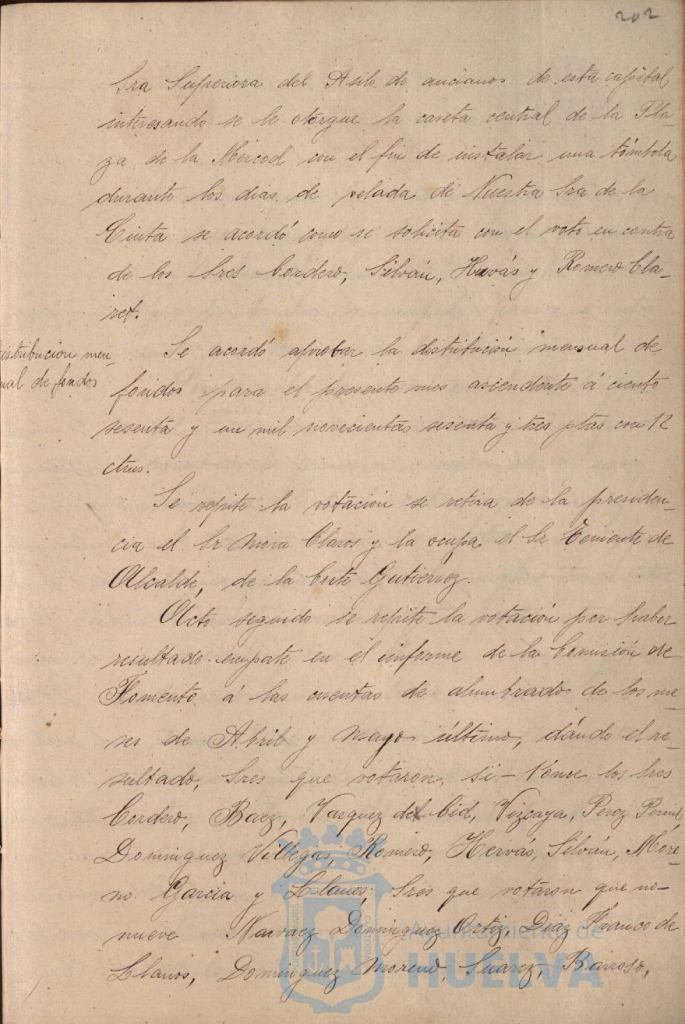 202
Sra Superiora del Asilo de ancianos de esta capital
interesando se le otorgue la caseta central de la Pla-
za de la Merced con el fin de instalar una tómbola
durante los dias de velada de Nuestra Sra de la
Cinta se acordó como se solicita con el voto en contra
de los Sres Cordero, Silván, Hervás y Romero Cla-
ret.
istribucion men-
ual de fondos
Se acordó aprobar la distribución mensual de
fondos para el presente mes ascendente á ciento
sesenta y un mil novecientas sesenta y tres ptas con 12
ctms.
Se repite la votación se retira de la presiden-
cia el Sr Mora Claros y la ocupa el Sr Teniente de
Alcalde, de la Corte Gutierrez.
Acto seguido se repite la votación por haber
resultado empate en el informe de la Comisión de
Fomento á las cuentas de alumbrado de los me-
ses de Abril y Mayo último, dándo el re-
sultado, Sres que votaron si - Once los Sres
Cordero, Baez, Vazquez del Cid, Vizcaya, Perez
Dominguez Villegas, Romero, Hervas, Silvan, More-
no Garcia y Llanes; Sres que votaron que no
nueve Narvaez Dominguez Ortiz, Diaz Franco de
Llanos, Dominguez Moreno, Suarez, Barroso,
Ayuntamiento de
HUELVA